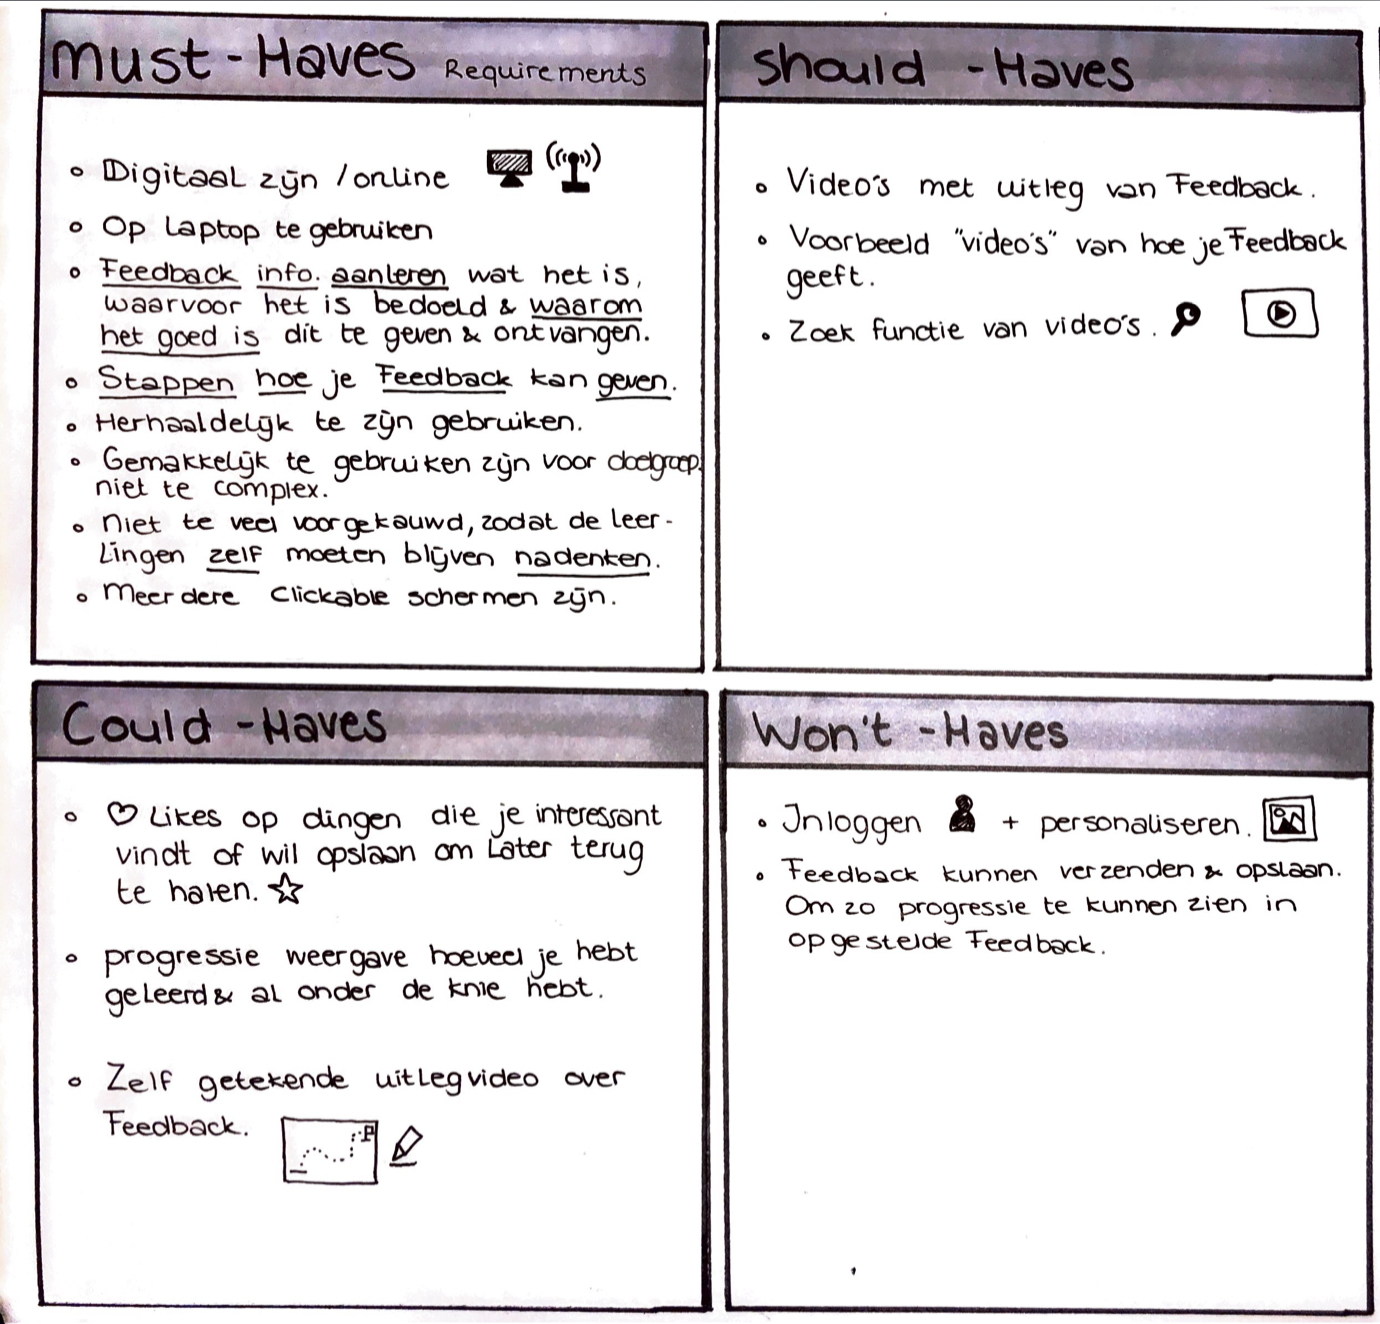 must-Haves Requirements
• Digitaal zijn / online
• Op laptop te gebruiken
• Feedback info. aanleren wat het is,
waarvoor het is bedoeld & waarom
het goed is dit te geven & ontvangen.
• Stappen hoe je Feedback kan geven.
• Herhaaldelijk te zijn gebruiken.
• Gemakkelijk te gebruiken zijn voor doelgroep.
niet te complex.
• niet te veel voorgekauwd, zodat de leer-
Lingen zelf moeten blijven nadenken.
• meerdere clickable schermen zijn.
should -Haves
• Video's met uitleg van Feedback.
• Voorbeeld "video's" van hoe je Feedback
geeft.
• Zoek functie van video's.
Could -Haves
• Likes op dingen die je interessant
vindt of wil opslaan om Later terug
te halen.
• progressie weergave hoeveel je hebt
geleerd & al onder de knie hebt.
• Zelf getekende uitlegvideo over
Feedback.
Won't -Haves
• Inloggen + personaliseren.
• Feedback kunnen verzenden & opslaan.
Om zo progressie te kunnen zien in
opgestelde Feedback.